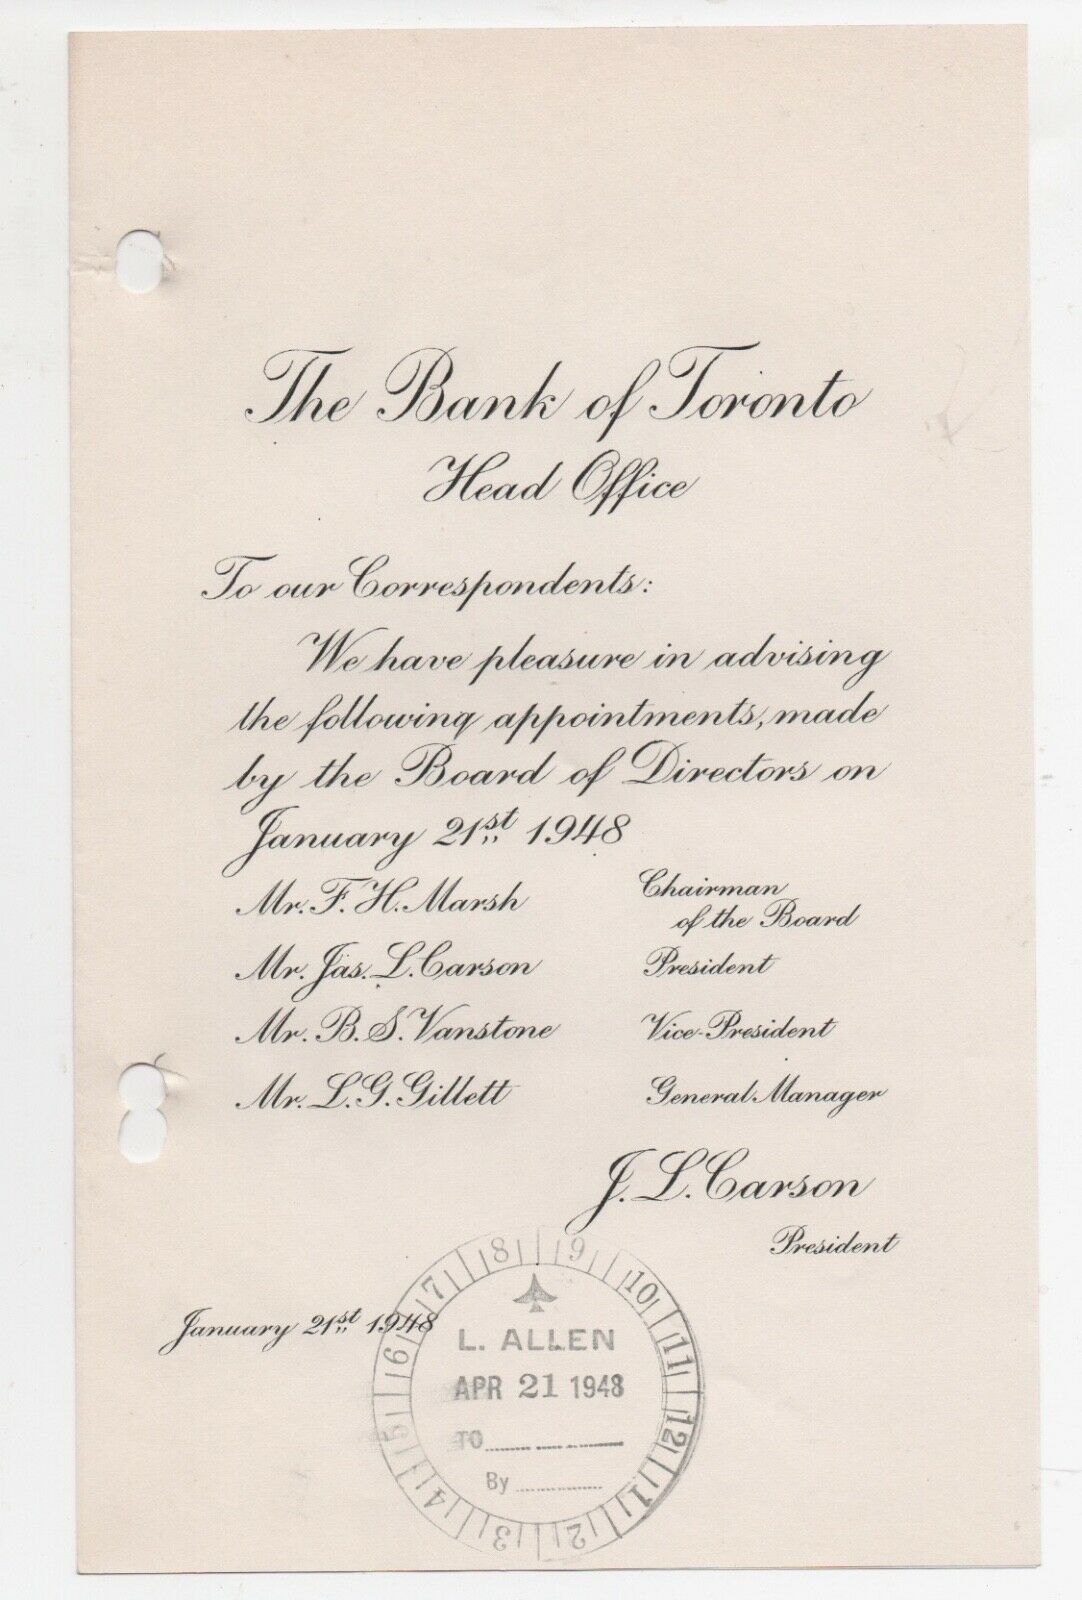 The Bank of Toronto
Head Office
To our Correspondents:
We have pleasure in advising
the following appointments, made
by the Board of Directors on
January 21st 1948
Mr. F. H. Marsh Chairman
of the Board
Mr. Jas. L. Carson President
Mr. B. S. Vanstone Vice-President
Mr. L. G. Gillett General Manager
J. L. Carson
President
January 21st 1948
8 9 10 11 12 1 2 3 4 5 6 7
L. ALLEN
APR 21 1948
TO
By